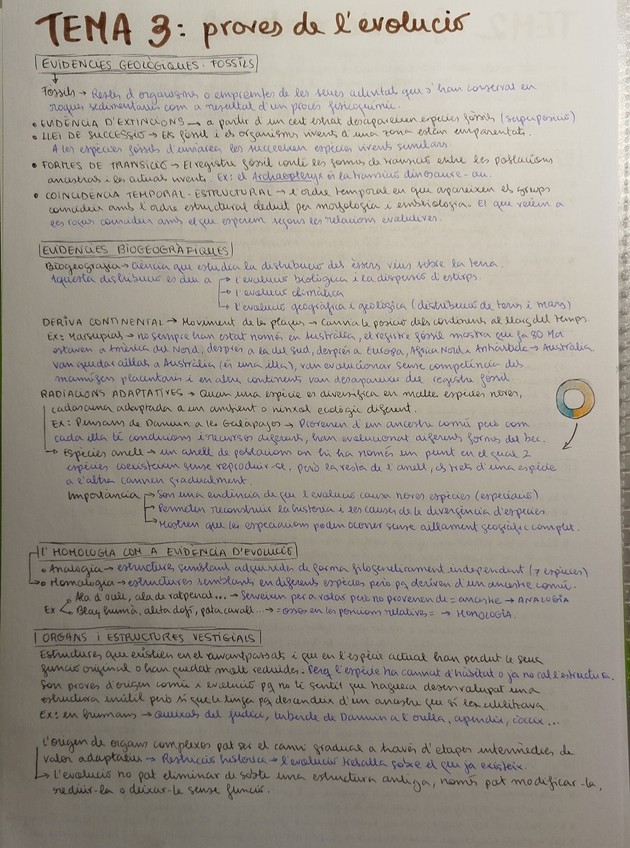 TEMA 3: proves de l'evolució
EVIDÈNCIES GEOLÒGIQUES: FOSSILS
Fòssils → Restes d'organismes o empremtes de les seues activitat que s'han conservat en
roques sedimentàries com a resultat d'un procés fisicoquímic.
• EVIDÈNCIA D'EXTINCIONS → a partir d'un cert estrat desapareixen espècies fòssils (superposició)
• LLEI DE SUCCESSIÓ → Els fòssils i els organismes vivents d'una zona estan emparentats.
A les espècies fòssils d'una àrea les succeeixen espècies vivents similars.
• FORMES DE TRANSICIÓ → El registre fòssil conté les formes de transició entre les poblacions
ancestrals i les actuals vivents. Ex: el Archaeopteryx és la transició dinosaure-au.
• COINCIDÈNCIA TEMPORAL-ESTRUCTURAL → l'ordre temporal en que apareixen els grups
coincideix amb l'ordre estructural deduït per morfologia i embriologia. El que veiem a
les roques coincideix amb el que esperem segons les relacions evolutives.
EVIDÈNCIES BIOGEOGRÀFIQUES
Biogeografia → Ciència que estudia la distribució dels éssers vius sobre la terra.
Aquesta distribució es deu a → l'evolució biològica i la dispersió d'estirps
→ l'evolució climàtica
→ l'evolució geogràfica i geològica (distribució de terres i mars)
DERIVA CONTINENTAL → Moviment de les plaques → Canvia la posició dels continents al llarg del temps.
Ex: Marsupials → no sempre han estat només en Austràlia, el registre fòssil mostra que fa 80 Ma
estaven a Amèrica del Nord, després a la del sud, després a Europa, Àfrica Nord i Antàrtida → Austràlia.
Van quedar aïllats a Austràlia (és una illa), van evolucionar sense competència dels
mamífers placentaris i en altres continents van desaparèixer del registre fòssil
RADIACIONS ADAPTATIVES → Quan una espècie es diversifica en moltes espècies noves,
cadascuna adaptada a un ambient o nínxol ecològic diferent.
Ex: Pinsans de Darwin a les Galápagos → Provenen d'un ancestre comú però com
cada illa té condicions i recursos diferents, han evolucionat diferents formes del bec.
→ Espècies anell → un anell de poblacions on hi ha només un punt en el qual 2
espècies coexisteixen sense reproduir-se, però la resta de l'anell, els trets d'una espècie
a l'altra canvien gradualment.
Importància → Son una evidència de que l'evolució causa noves espècies (especiació)
→ Permeten reconstruir la història i les causes de la divergència d'espècies
→ Mostren que les especiacions poden ocórrer sense aïllament geogràfic complet.
L'HOMOLOGIA COM A EVIDÈNCIA D'EVOLUCIÓ
• Analogia → estructures semblants adquirides de forma filogenèticament independent (≠ espècies)
• Homologia → estructures semblants en diferents espècies però pq deriven d'un ancestre comú.
Ex Ala d'ocell, ala de ratpenat... → Serveixen per a volar però no provenen de = ancestre → ANALOGIA
Braç humà, aleta dofí, pota cavall... → = ossos en les posicions relatives = → HOMOLOGIA
ORGANS I ESTRUCTURES VESTIGIALS
Estructures que existien en els avantpassats i que en l'espècie actual han perdut la seua
funció original o han quedat molt reduïdes. Perq l'espècie ha canviat d'hàbitat o ja no cal l'estructura.
Son proves d'origen comú i evolució pq no té sentit que haguera desenvolupat una
estructura inútil però si que la tinga pq descendeix d'un ancestre que si la utilitzava
Ex: en humans → Queixals del judici, tubercle de Darwin a l'orella, apèndix, còccix...
L'origen de organs complexos pot ser el canvi gradual a través d'etapes intermèdies de
valor adaptatiu → Restricció històrica → l'evolució treballa sobre el que ja existeix.
→ L'evolució no pot eliminar de sobte una estructura antiga, només pot modificar-la,
reduir-la o deixar-la sense funció.